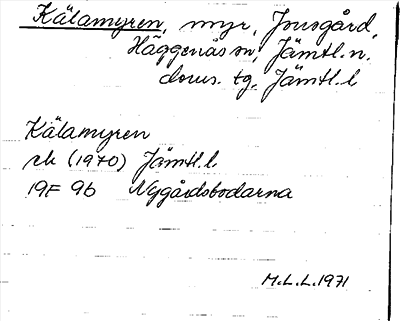 Kälamyren, myr, Jonsgård,
Häggenås sn, Jämtl. n.
doms. tg, Jämtl. l
Kälamyren
ek (1970) Jämtl. l.
19F 9b Nygårdsbodarna
M.L.L. 1971